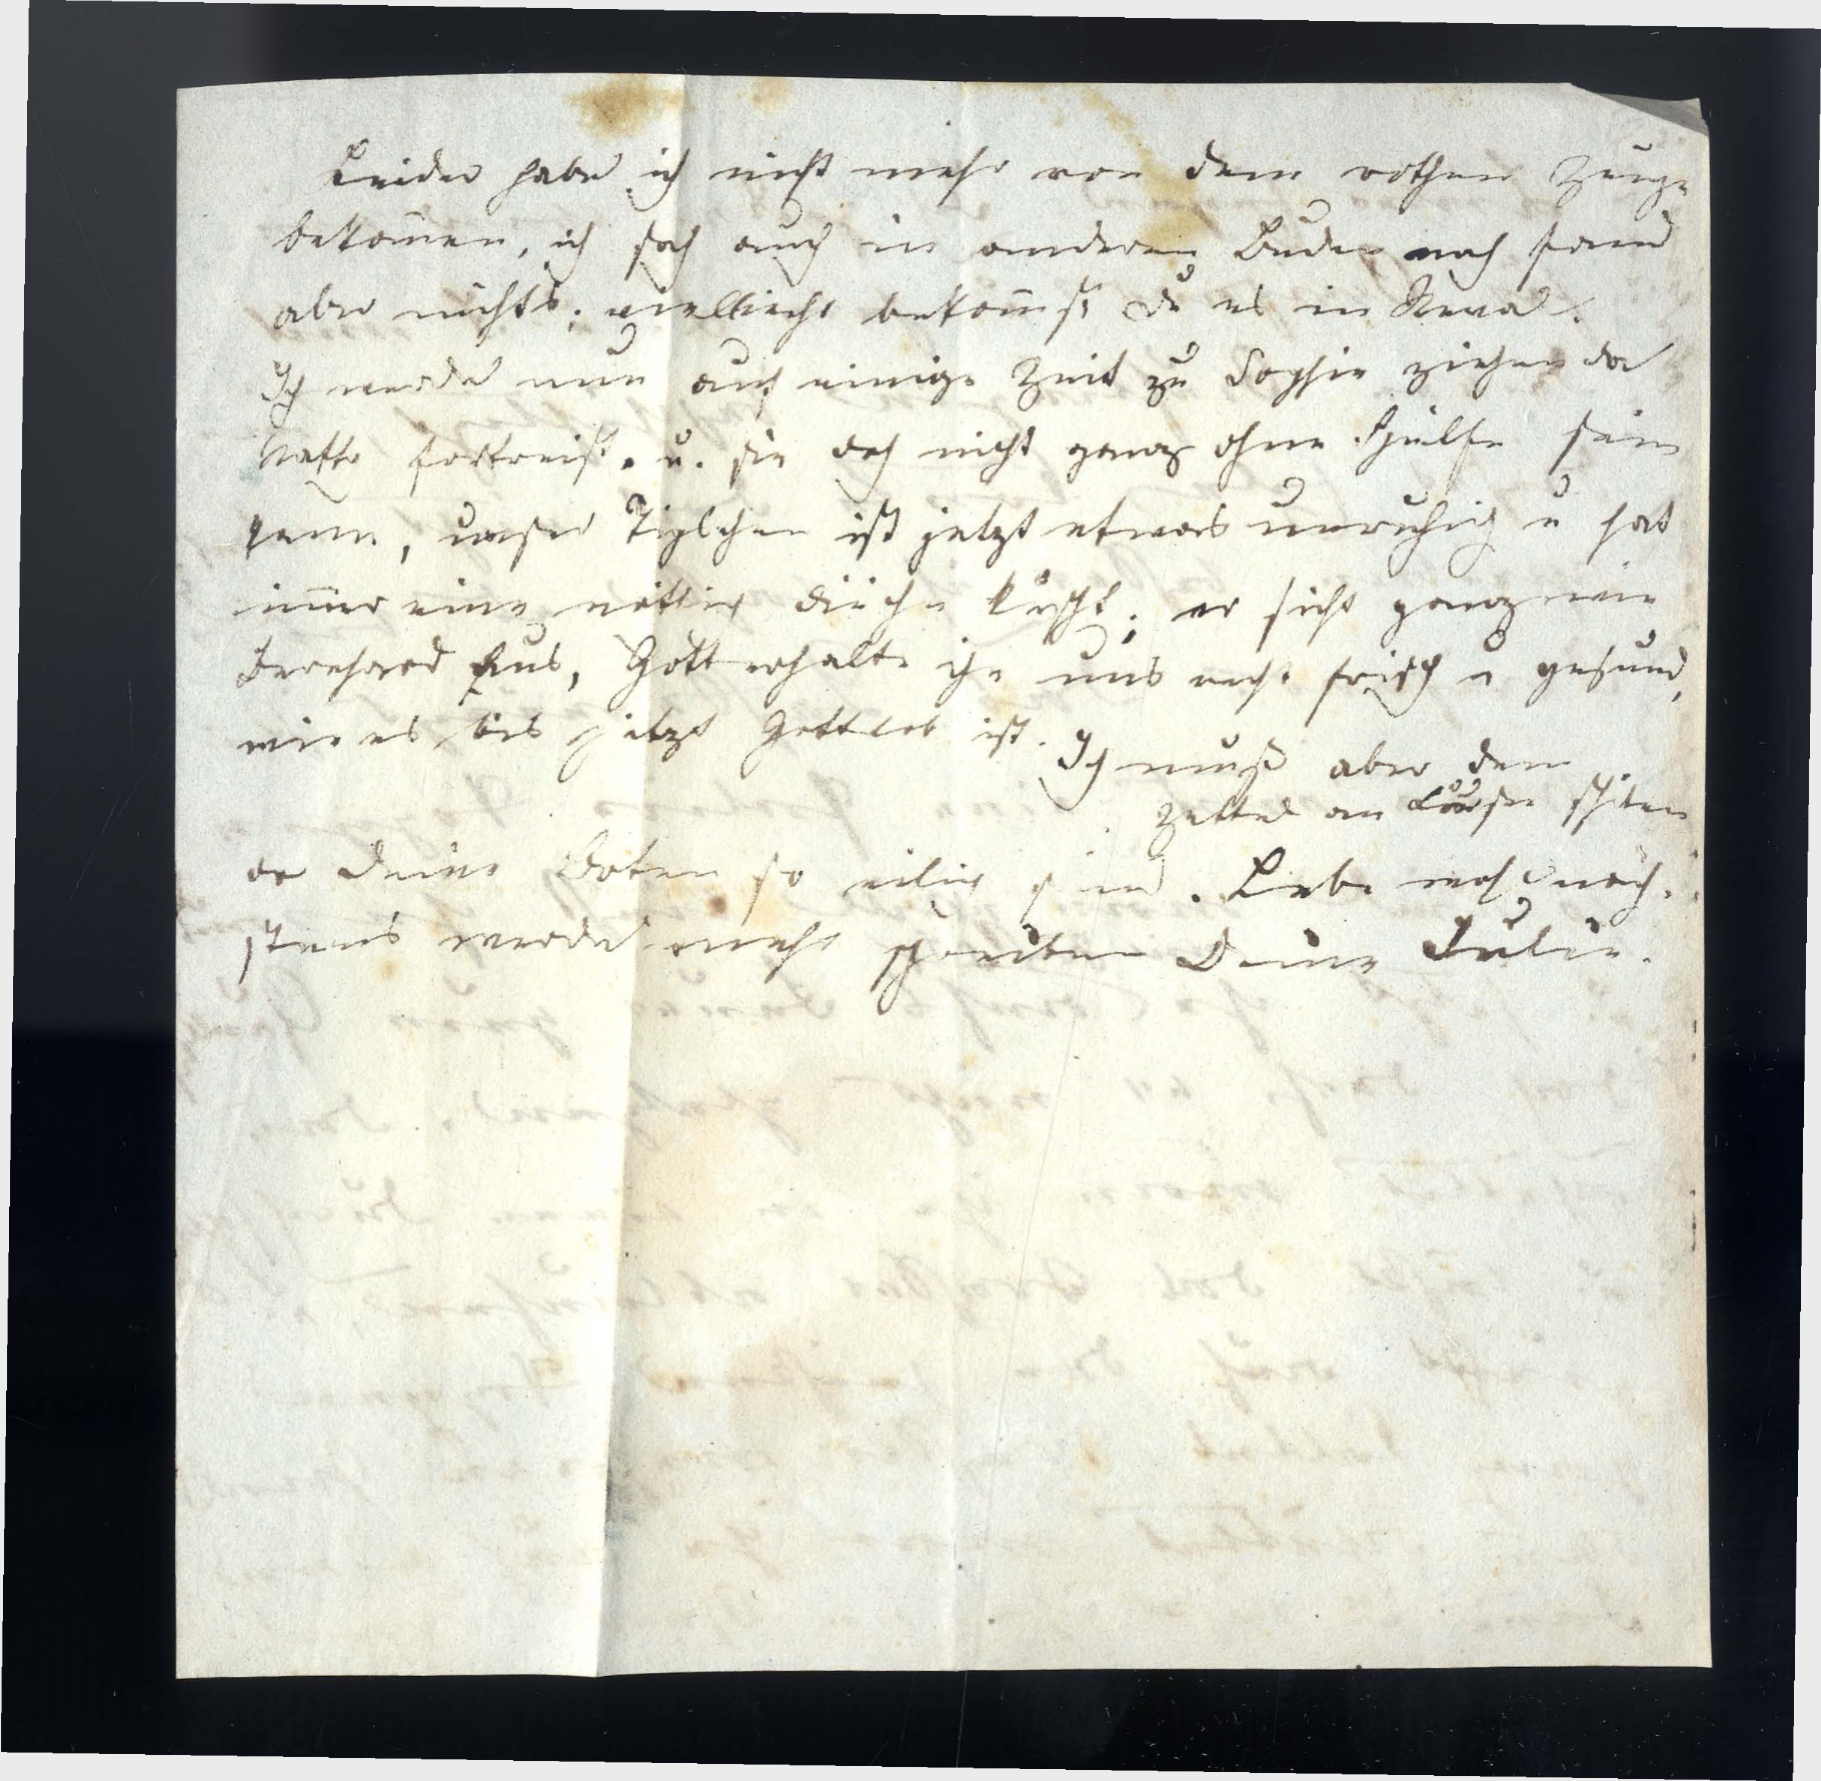 Leider habe ich nicht mehr von dem rothen Zeuge
bekom̄en, ich sah auch in anderen Buden nach fand
aber nichts; vielleicht bekom̄st du es in Reval.
Ich werde nun auf einige Zeit zu Sophie ziehen da
fortreist. u. sie doch nicht ganz ohne Hülfe sein
kann, unser ist jetzt etwas unruhig u hat
im̄er eine ; er sieht ganz wie
Bernhard aus, Gott erhalte ihn uns recht frisch u gesund,
wie es bis jetzt Gottlob ist. Ich muß aber den
Zettel an Louise
da deine Boten so eilig sind. Lebe wohl näch-
stens werde mehr schreiben Deine Julie.